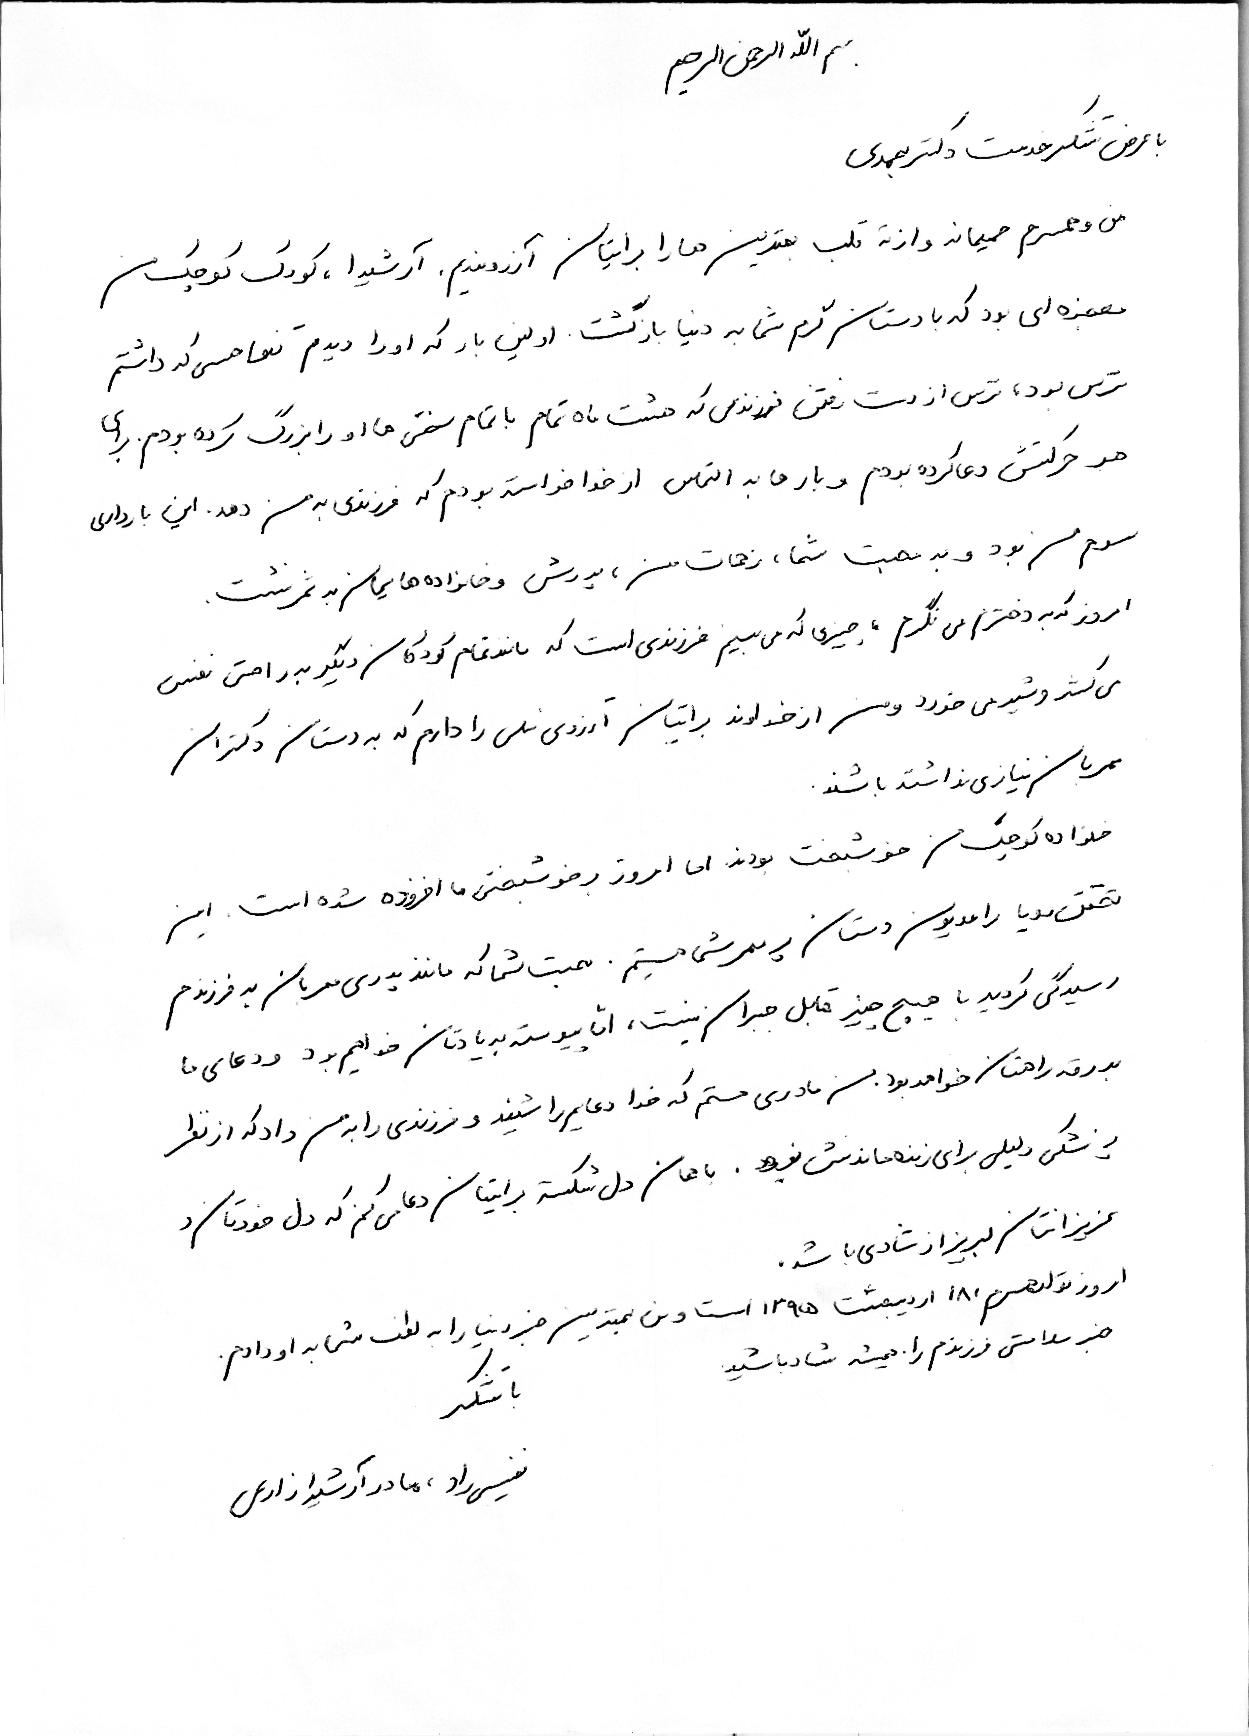 بسم الله الرحمن الرحیم
با عرض تشکر خدمت دکتر
من و همسرم صمیمانه و از ته قلب بهترین ها را برایتان آرزومندیم. آرشیدا، کودک کوچک من
معجزه ای بود که با دستان گرم شما به دنیا بازگشت. اولین بار که او را دیدم تنها حسی که داشتم
ترس بود، ترس از دست رفتن فرزندی که هشت ماه تمام با تمام سختی ها او را بزرگ کرده بودم. برای
هر حرکتش دعا کرده بودم و بارها به التماس از خدا خواسته بودم که فرزندی به من دهد. این بارداری
سوم من بود و به محبت شما، زحمات من، پدرش و خانواده هایمان به ثمر نشست.
امروز که به دخترم می نگرم، چیزی که می بینم فرزندی است که مانند تمام کودکان دیگر به راحتی نفس
می کشد و شیر می خورد و من از خداوند برایتان آرزوی نسلی را دارم که به دستان دکتران
مهربان نیازی نداشته باشند.
خانواده کوچک من خوشبخت بودند اما امروز بر خوشبختی ما افزوده شده است. این
تحقق رویا را مدیون دستان پر مهر شما هستیم. محبت شما که مانند پدری مهربان به فرزندم
رسیدگی کردید با هیچ چیز قابل جبران نیست، امّا پیوسته به یادتان خواهیم بود و دعای ما
بدرقه راهتان خواهد بود. من مادری هستم که خدا دعایم را شنید و فرزندی را به من داد که از نظر
پزشکی دلیلی برای زنده ماندنش نبود. با همان دل شکسته برایتان دعا می کنم که دل خودتان و
عزیزانتان لبریز از شادی باشد.
امروز تولد همسرم ۱۸، اردیبهشت ۱۳۹۵ است و من بهترین خبر دنیا را به لطف شما به او دادم.
خبر سلامتی فرزندم را. همیشه شاد باشید.
با تشکر
نفیسی راد، مادر آرشیدا زارعی